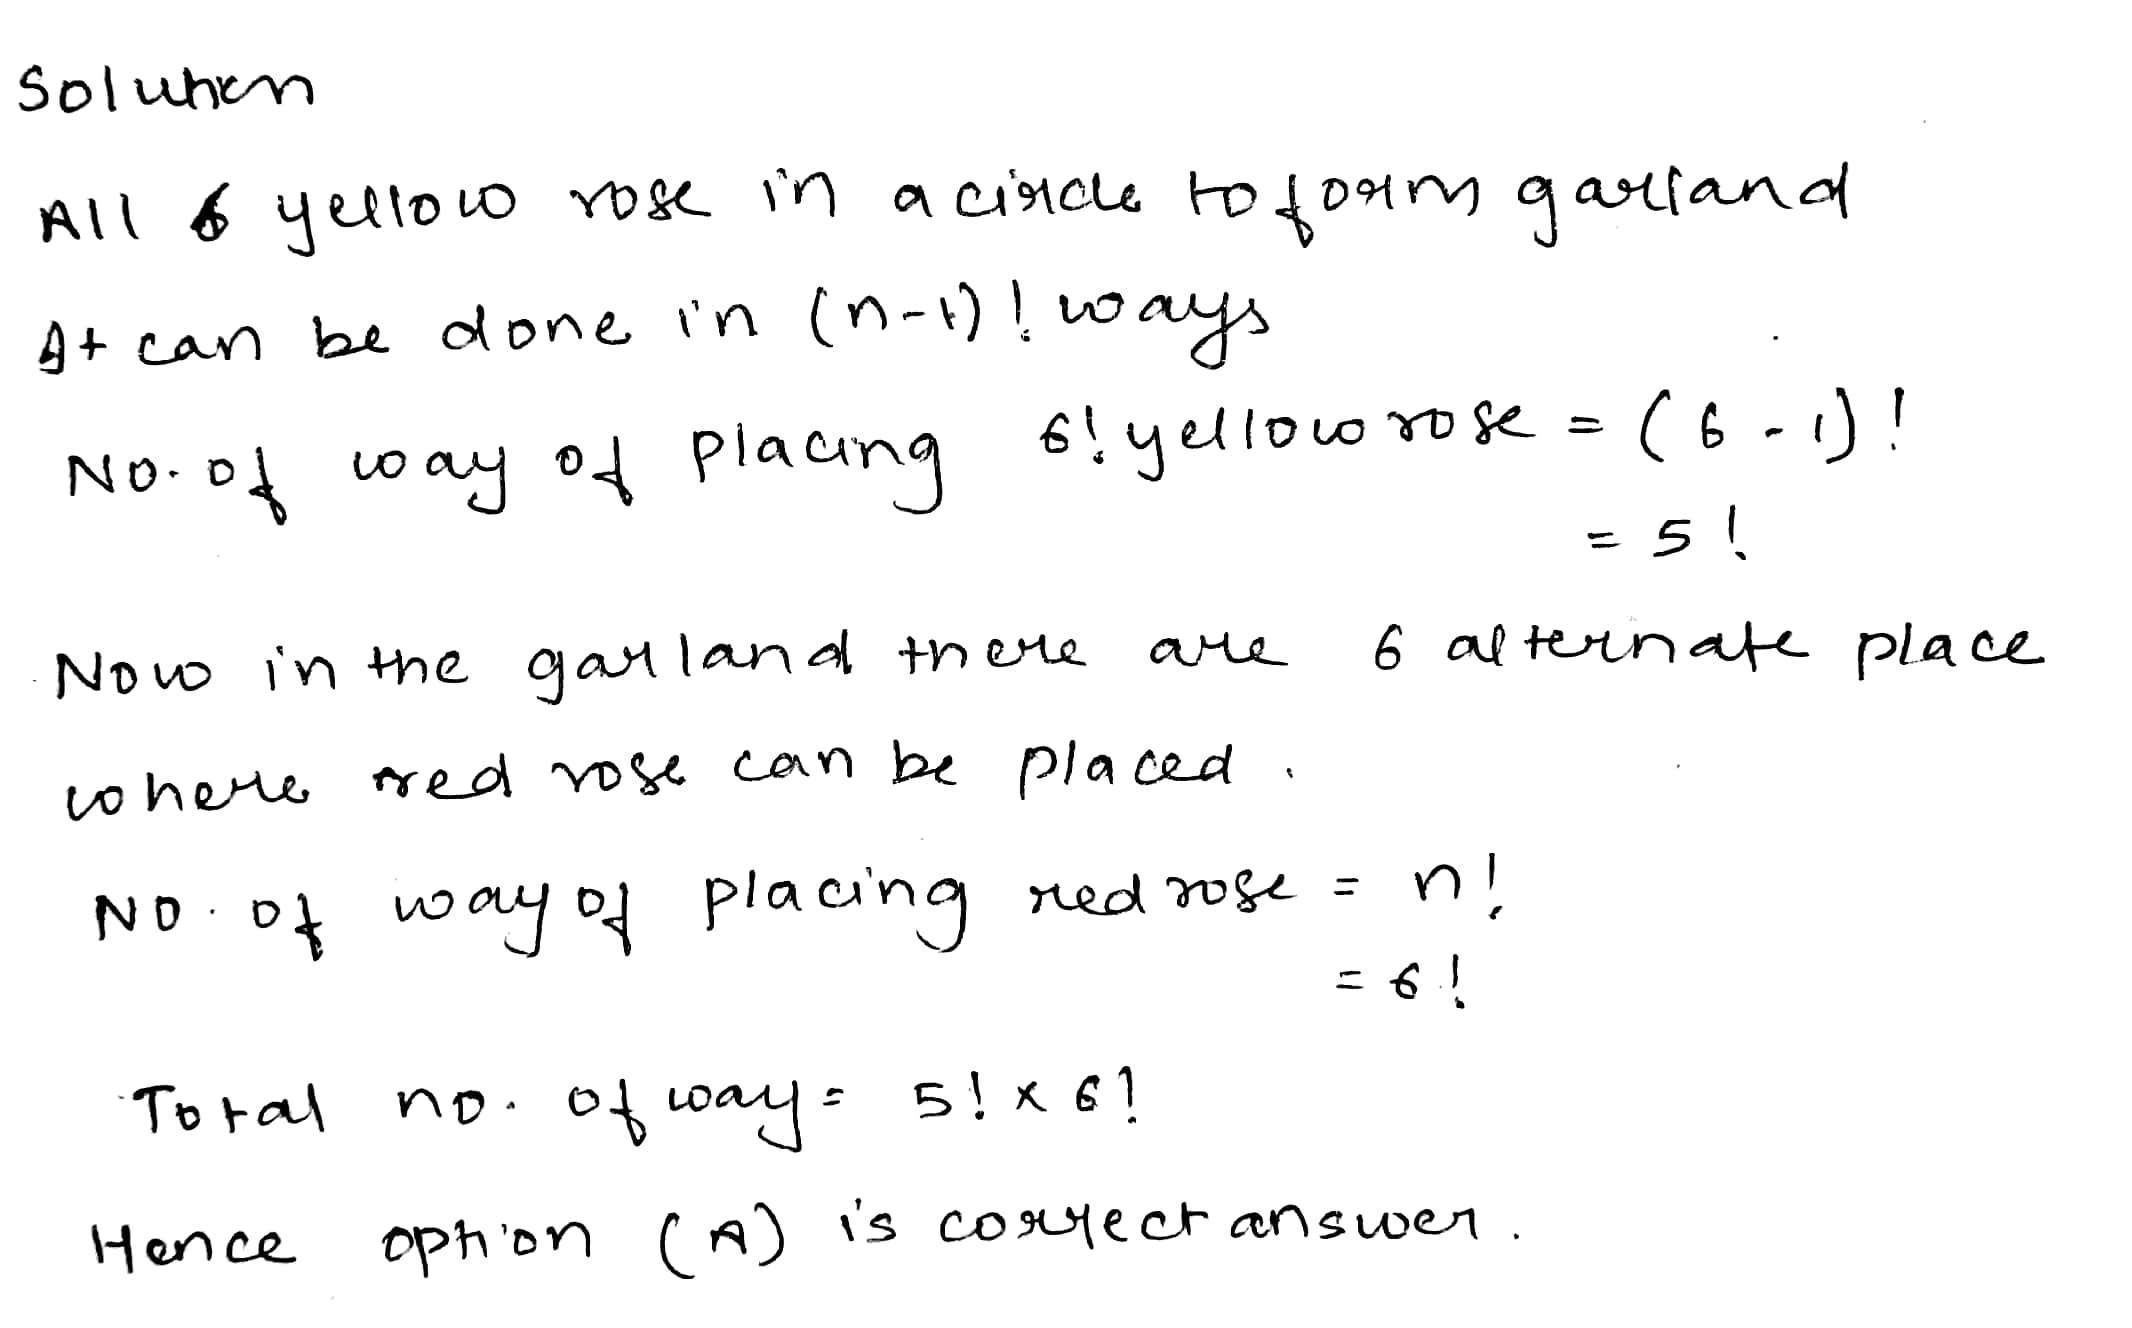 Solution
All 6 yellow rose in a circle to form garland
It can be done in (n-1)! ways
No. of way of placing 6! yellow rose = (6-1)!
= 5!
Now in the garland there are 6 alternate place
where red rose can be placed.
No. of way of placing red rose = n!
= 6!
Total no. of way = 5! x 6!
Hence option (A) is correct answer.